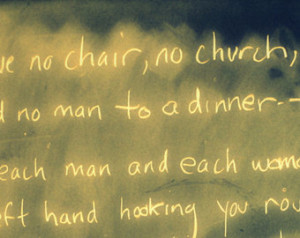 no chair, no church,
no man to a dinner--
each man and each
hand hooking you